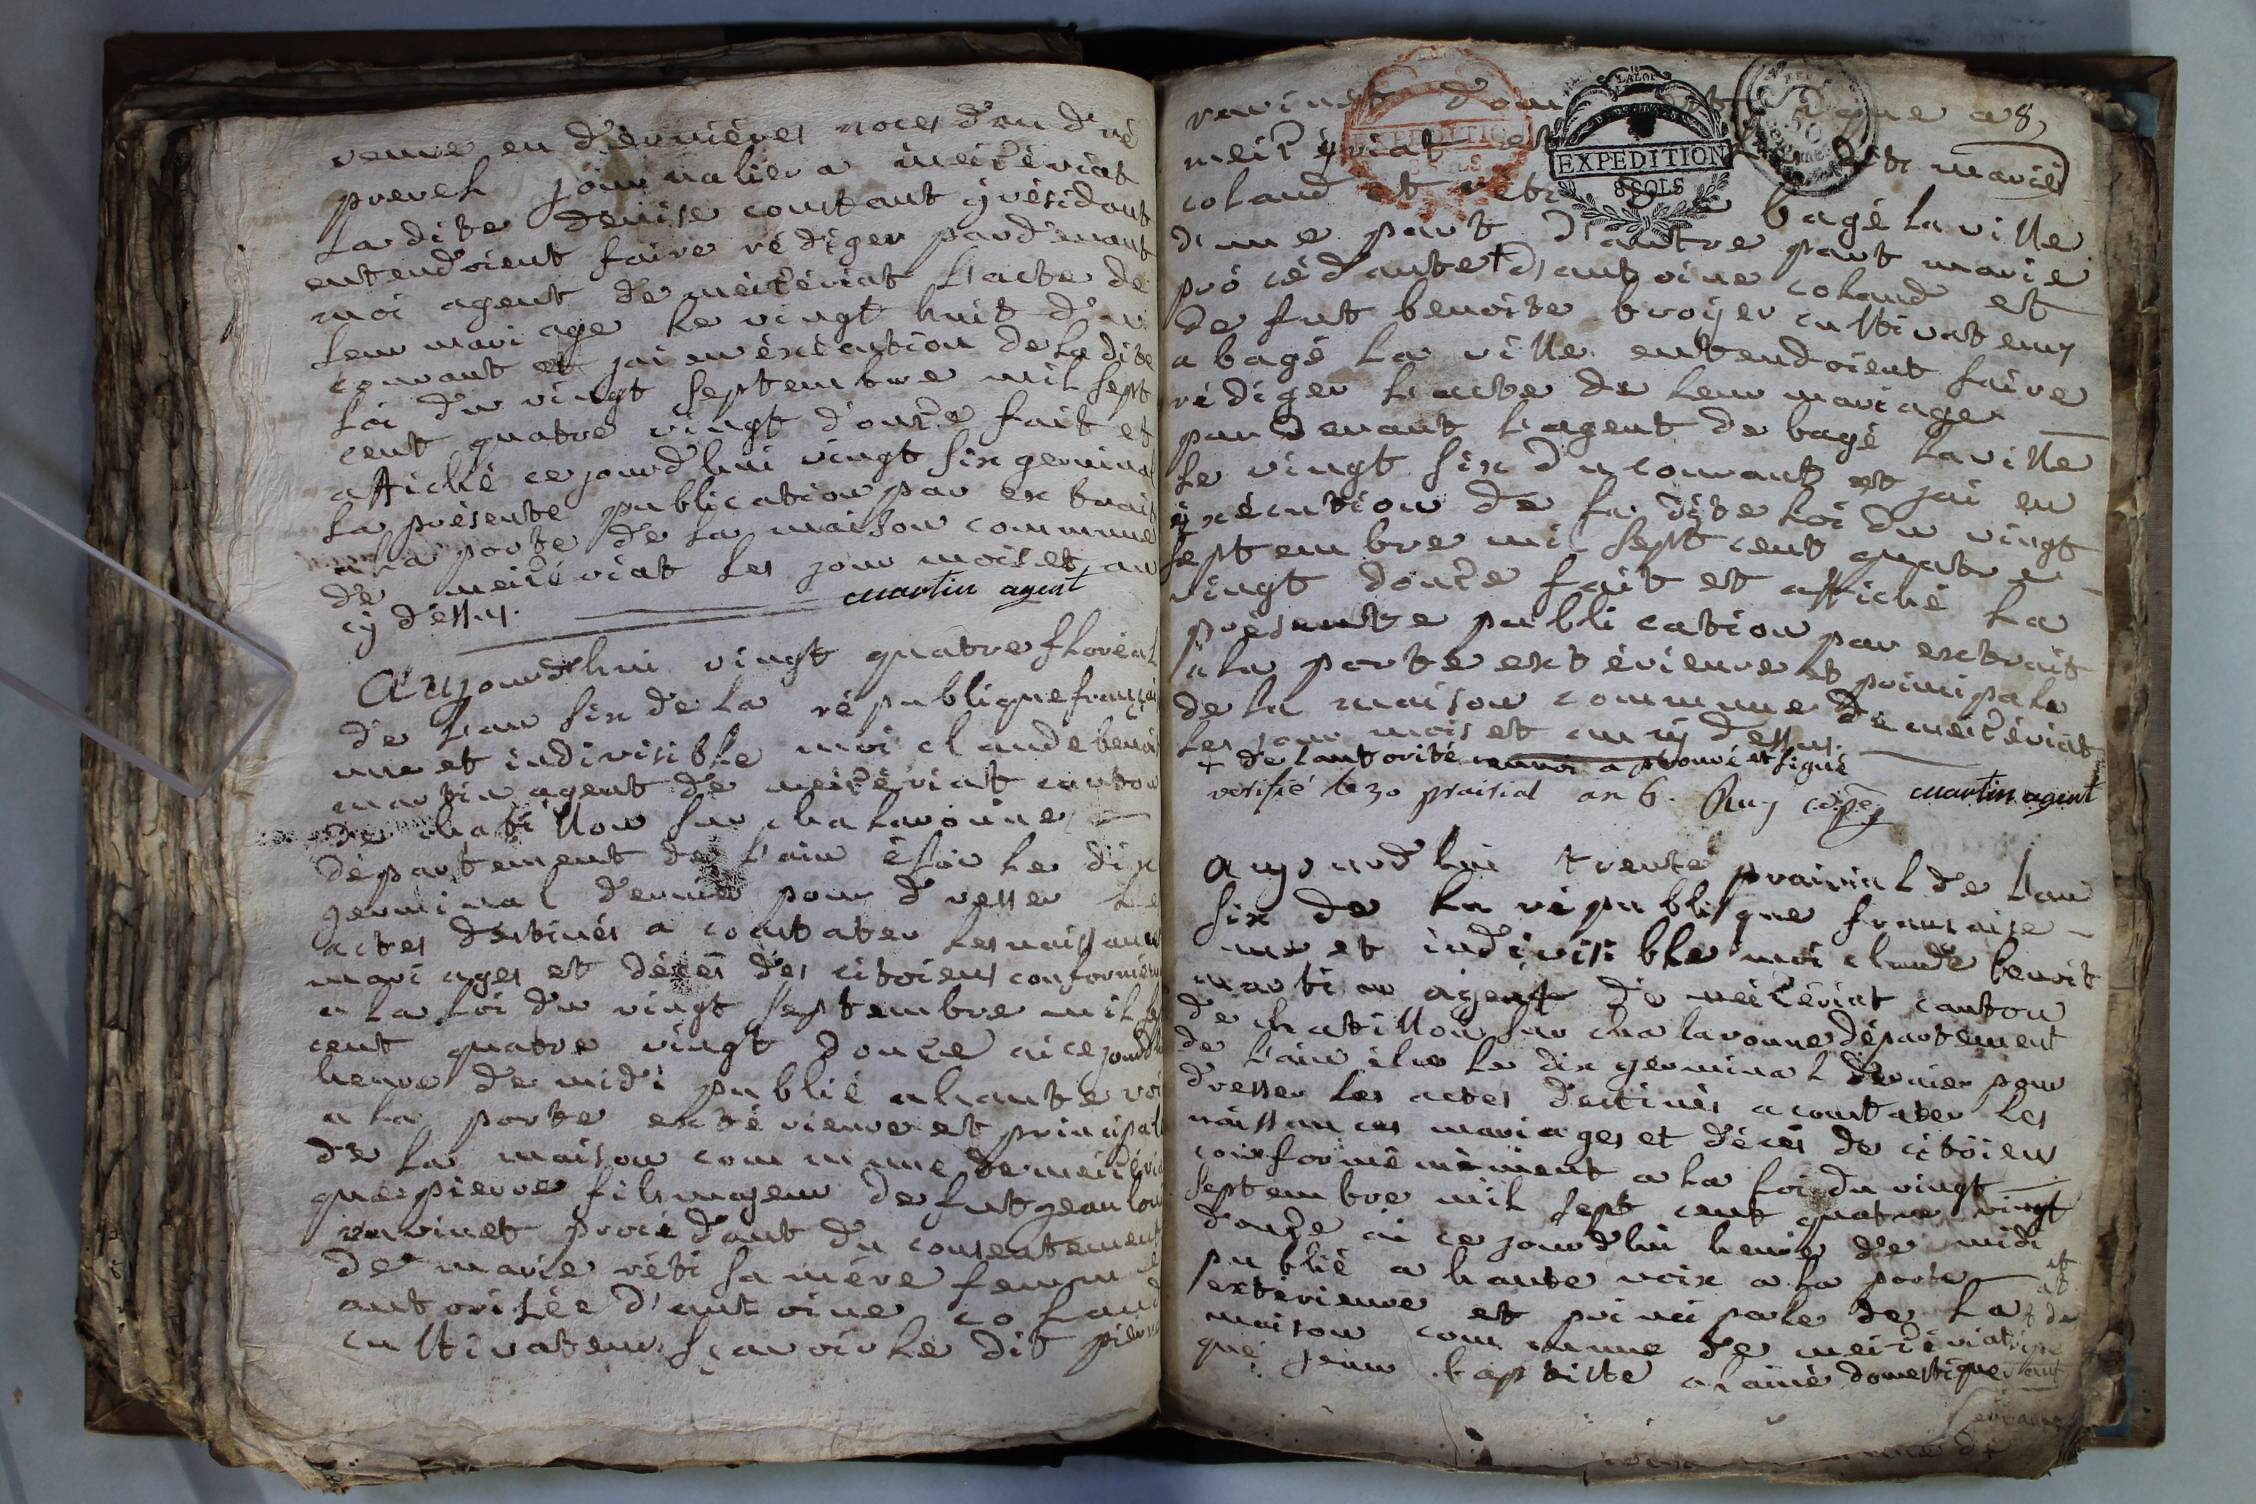 veuve en dernières noces d'andré
perech journalier a meizériat
la dite denise constant y résidant
entendoient faire rédiger pardevant
moi agent de meizériat l'acte de
leur mariage le vingt huit du
courant et jai en éxécution de la dite
loi du vingt septembre mil sept
cent quatre vingt douze fait et
affiché ce jourd'hui vingt six germinal
la présente publication par extrait
a la porte de la maison commune
de meizériat les jour mois et an
cy dessus.
martin agent
Aujourdhui vingt quatre floréal
de l'an six de la république françai
une et indivisible moi claude benoit
martin agent de meizériat canton
de chatillon sur chalaronne
département de l'ain élu le dix
germinal dernier pour dresser le
actes destinés a constater les naissances
mariages et décès des citoiens conformém
a la loi du vingt septembre mil se
cent quatre vingt douze ai ce jourdh
heure de midi publié a haute voi
a la porte extérieure et principale
de la maison commune de meizéria
que pierre fils majeur de fut jean lou
ravinet procédant du consentement
de marie réti sa mère femme
autorisée d'antoine coland
cultivateur sçavoir le dit pierre
ravinet dom
8
EXPEDITION
8 SOLS
EXPEDITION
8 SOLS
LA LOI
meizériat et
coland et marie
d'une part d'autre part marie
bagé la ville
procédante + d'antoine coland et
de fut benoite broyer cultivateurs
a bagé la ville entendoient faire
rédiger l'acte de leur mariage
par devant l'agent de bagé la ville
le vingt six du courant et jai en
éxécution de la dite loi du vingt
septembre mil sept cent quatre
vingt douze fait et affiché la
présente publication par extrait
a la porte extérieure et principale
de la maison commune de meizériat
les jour mois et an cy dessus.
+ de lautorité renvoi aprouvé et signé
verifié le 30 prairial an 6.
martin agent
aujourd'hui trente prairial de l'an
six de la république francaise
une et indivisible moi claude benoit
martin agent de meizériat canton
de chatillon sur chalaronne département
de l'ain élu le dix germinal dernier pour
dresser les actes destinés a constater les
naissances mariages et décès de citoien
conformémèment a la loi du vingt
septembre mil sept cent quatre vingt
douze ai ce jourdhui heure de midi
publié a haute voix a la porte
extérieure et principale de la
maison commune de meizériat
que jean baptiste alainé domestique